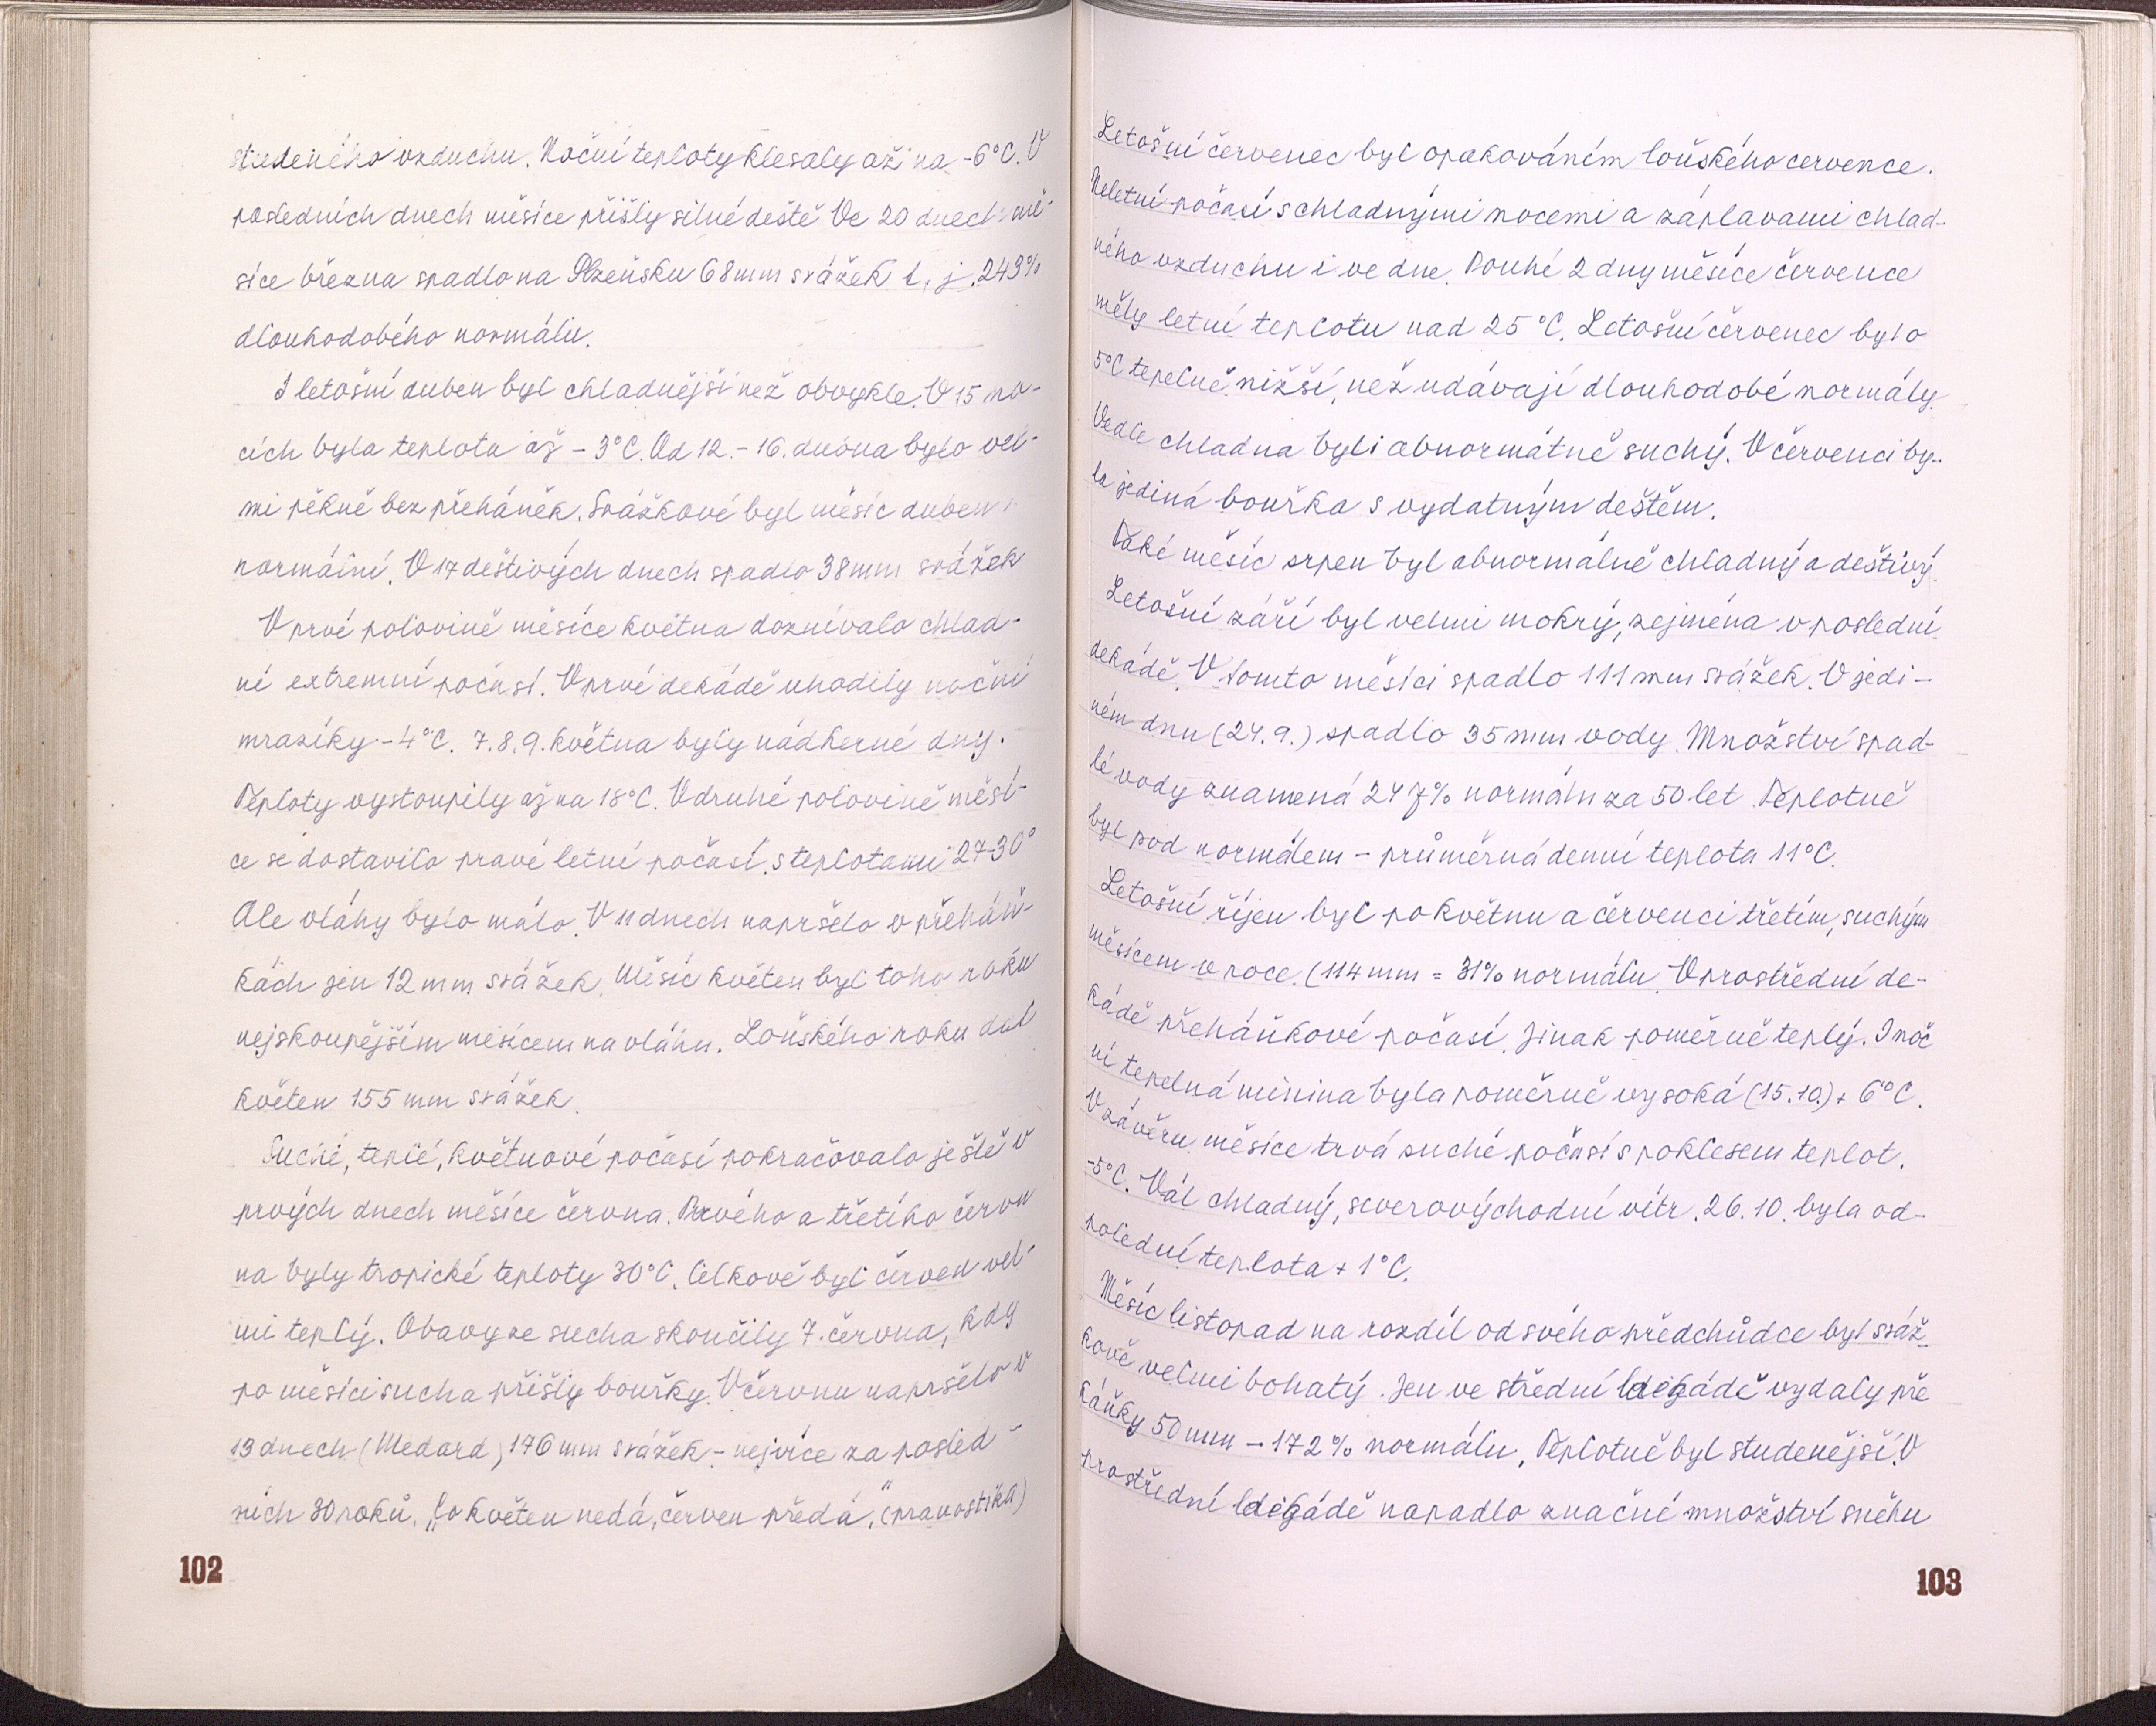 studeného vzduchu. Noční teploty klesaly až na -6°C. V
posledních dnech měsíce přišly silné deště Ve 20 dnech mě-
síce března spadlo na Plzeňsku 68 mm srážek t. j. 243%
dlouhodobého normálu.
I letošní duben byl chladnější než obvykle. V 15 no-
cích byla teplota až - 3°C. Od 12. - 16. dubna bylo vel-
mi pěkně bez přeháněk. Srážkově byl měsíc duben
normální. V 17 deštivých dnech spadlo 38 mm srážek
V prvé polovině měsíce května doznívalo chlad-
né extremní počasí. V prvé dekádě uhodily noční
mrazíky - 4°C. 7. 8. 9. května byly nádherné dny.
Teploty vystoupily až na 18°C. V druhé polovině měsí-
ce se dostavilo pravé letní počasí s teplotami 27-30°
Ale vláhy bylo málo. V 11 dnech napršelo v přeháň-
kách jen 12 mm srážek. Měsíc květen byl toho roku
nejskoupějším měsícem na vláhu. Loňského roku dal
květen 155 mm srážek.
Suché, teplé, květnové počasí pokračovalo ještě v
prvých dnech měsíce června. Prvého a třetího červ
na byly tropické teploty 30°C. Celkově byl červen vel-
mi teplý. Obavy ze sucha skončily 7. června, kdy
po měsíci sucha přišly bouřky. V červnu napršelo v
13 dnech (Medard) 176 mm srážek - nejvíce za posled-
ních 30 roků. "Co květen nedá, červen předá." (pranostika)
102
Letošní červenec byl opakováním loňského července.
Neletní počasí s chladnými nocemi a záplavami chlad-
ného vzduchu i ve dne. Pouhé 2 dny měsíce července
měly letní teplotu nad 25°C. Letošní červenec bylo
5°C tepelně nižší, než udávají dlouhodobé normály.
Vedle chladna byli abnormátně suchý. V červenci by-
la jediná bouřka s vydatným deštěm.
Také měsíc srpen byl abnormálně chladný a deštivý.
Letošní září byl velmi mokrý, zejména v poslední
dekádě. V tomto měsíci spadlo 111 mm srážek. V jedi-
ném dnu (24. 9.) spadlo 35 mm vody. Množství spad-
lé vody znamená 247% normálu za 50 let. Teplotně
byl pod normálem - průměrná denní teplota 11°C.
Letošní říjen byl po květnu a červenci třetím, suchým
měsícem v roce. (114 mm = 31% normálu. V prostřední de-
kádě přeháňkové počasí. Jinak poměrně teplý. I noč
ní tepelná minina byla poměrně vysoká (15. 10.) + 6°C.
V závěru měsíce trvá suché počasí s poklesem teplot.
-5°C. Vál chladný, severovýchodní vítr. 26. 10. byla od-
polední teplota + 1°C.
Měsíc listopad na rozdíl od svého předchůdce byl sráž-
kově velmi bohatý. Jen ve střední dekádě vydaly pře
háňky 50 mm - 172% normálu. Teplotně byl studenější. V
prostřední dekádě napadlo značné množství sněhu
103